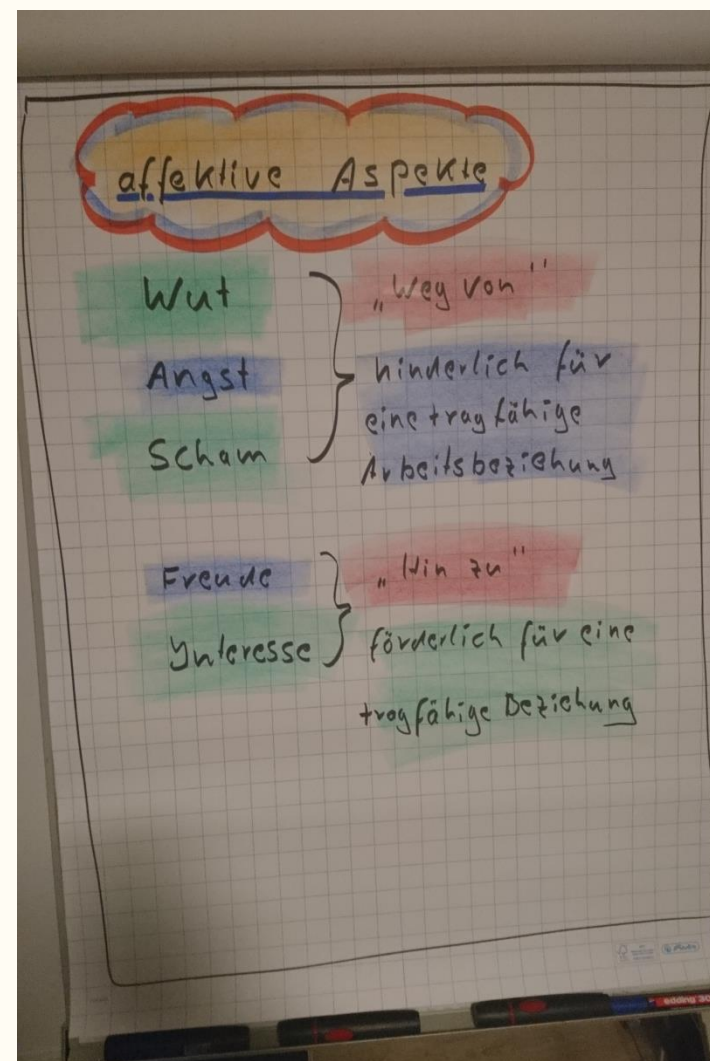 affektive Aspekte
Wut
Angst
Scham
„Weg von"
hinderlich für
eine tragfähige
Arbeitsbeziehung
Freude
Interesse
„Hin zu"
förderlich für eine
tragfähige Beziehung
edding 30